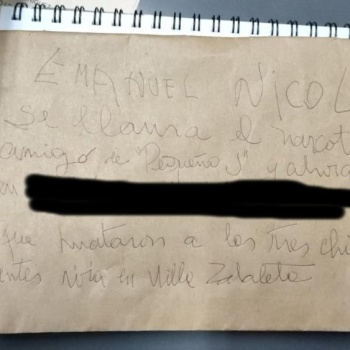 EMANUEL NICOL
Se llama el narcot
amigo de "Pequeño J" y ahora
en
que mataron a las tres chi
antes vivía en Villa Zabaleta